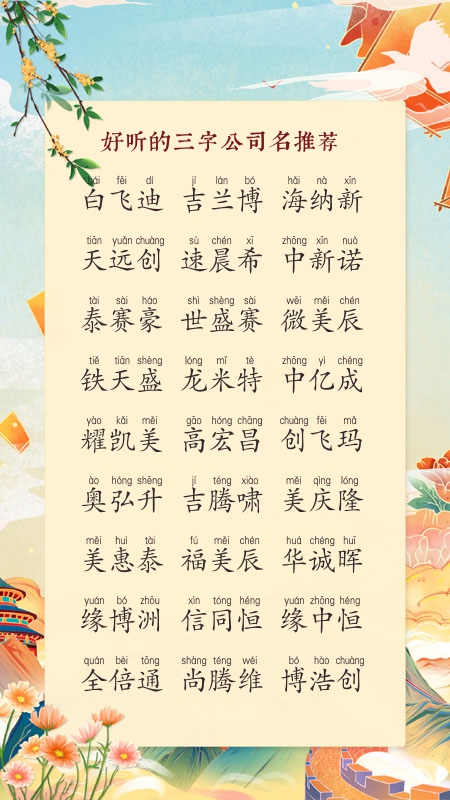 好听的三字公司名推荐
bái fēi dí jí lán bó hǎi nà xīn
白飞迪 吉兰博 海纳新
tiān yuǎn chuàng sù chén xī zhōng xīn nuò
天远创 速晨希 中新诺
tài sài háo shì shèng sài wēi měi chén
泰赛豪 世盛赛 微美辰
tiě tiān shèng lóng mǐ tè zhōng yì chéng
铁天盛 龙米特 中亿成
yào kǎi měi gāo hóng chāng chuàng fēi mǎ
耀凯美 高宏昌 创飞玛
ào hóng shēng jí téng xiào měi qìng lóng
奥弘升 吉腾啸 美庆隆
měi huì tài fú měi chén huá chéng huī
美惠泰 福美辰 华诚晖
yuán bó zhōu xìn tóng héng yuán zhōng héng
缘博洲 信同恒 缘中恒
quán bèi tōng shàng téng wéi bó hào chuàng
全倍通 尚腾维 博浩创